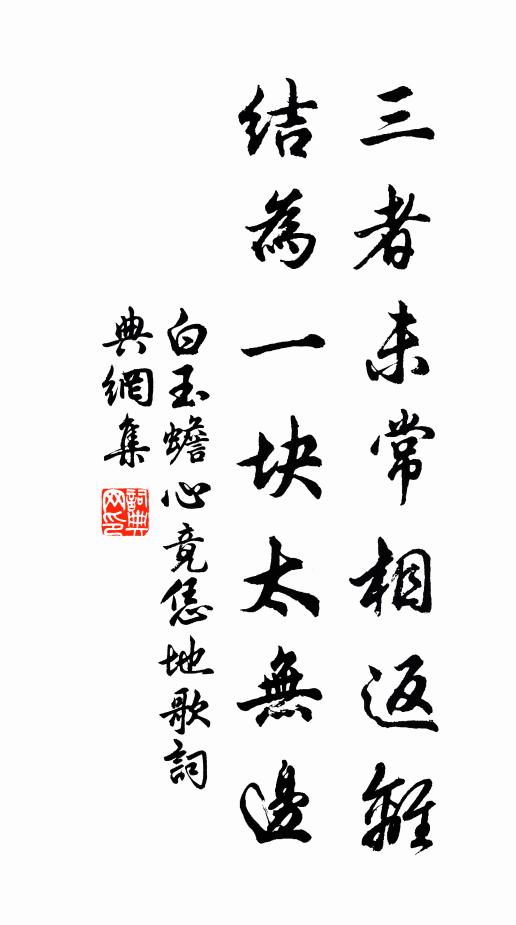 三者未常相返離
結為一块太無邊
白玉蟾心竟恁地歌詞
典網集
詞典網印